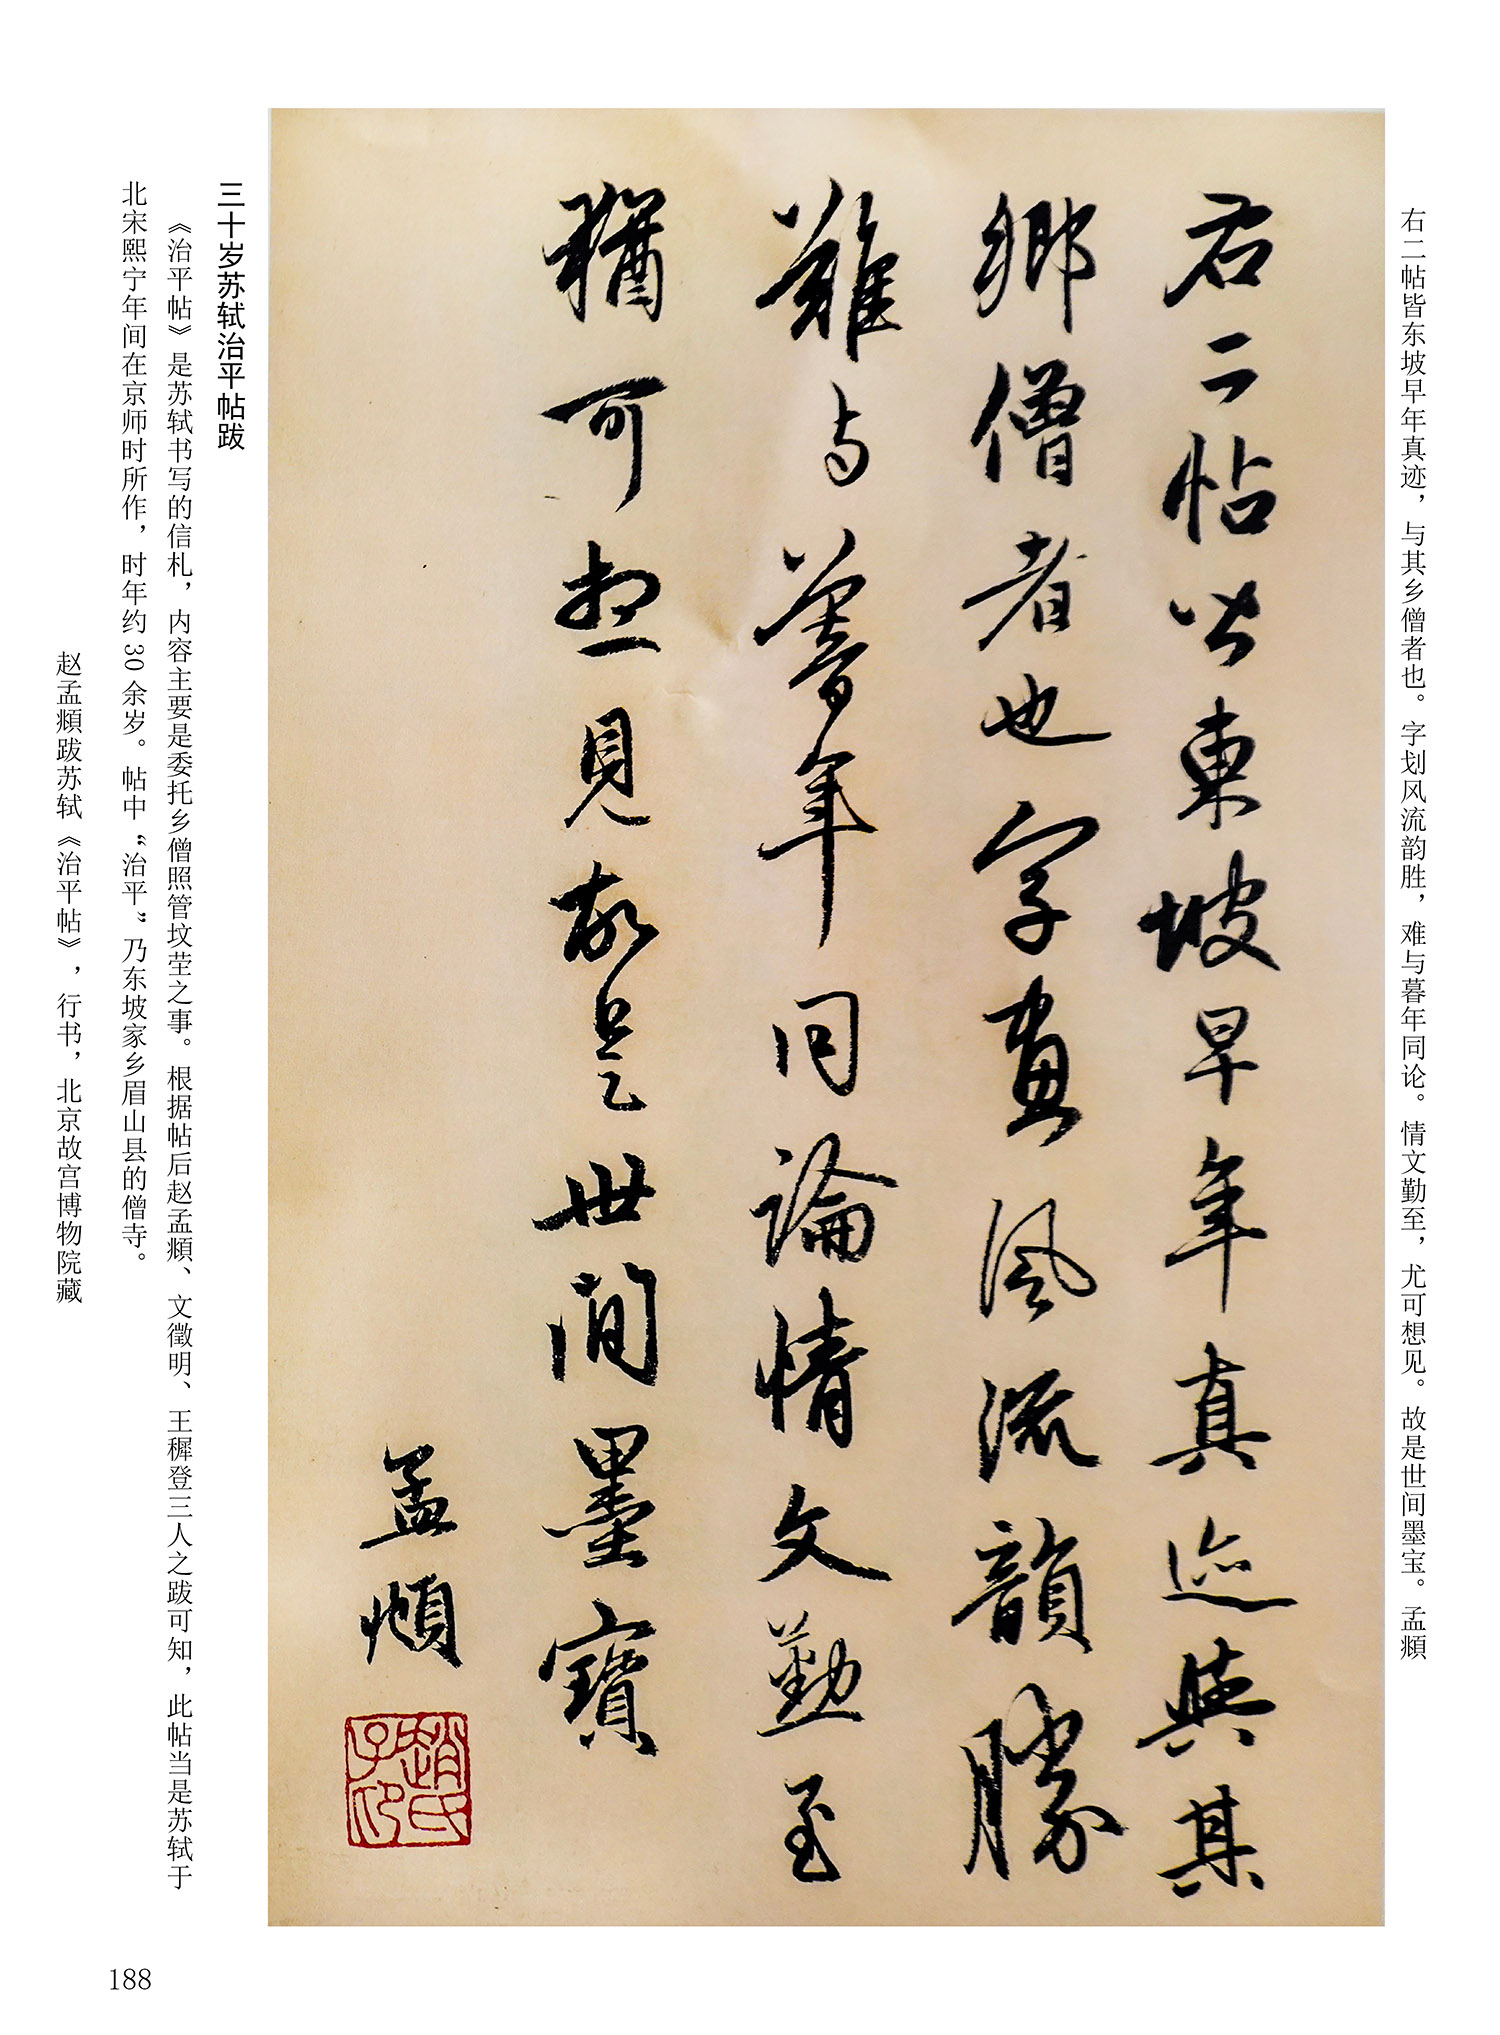 右二帖皆东坡早年真迹，与其乡僧者也。字划风流韵胜，难与暮年同论。情文勤至，尤可想见。故是世间墨宝。孟頫
右二帖皆東坡早年真迹與其
鄉僧者也字畫風流韻勝
難与暮年同論情文勤至
猶可想見故是世間墨寶
孟頫
趙氏子印
三十岁苏轼治平帖跋
《治平帖》是苏轼书写的信札，内容主要是委托乡僧照管坟茔之事。根据帖后赵孟頫、文徵明、王穉登三人之跋可知，此帖当是苏轼于
北宋熙宁年间在京师时所作，时年约30余岁。帖中“治平”乃东坡家乡眉山县的僧寺。
赵孟頫跋苏轼《治平帖》，行书，北京故宫博物院藏
188